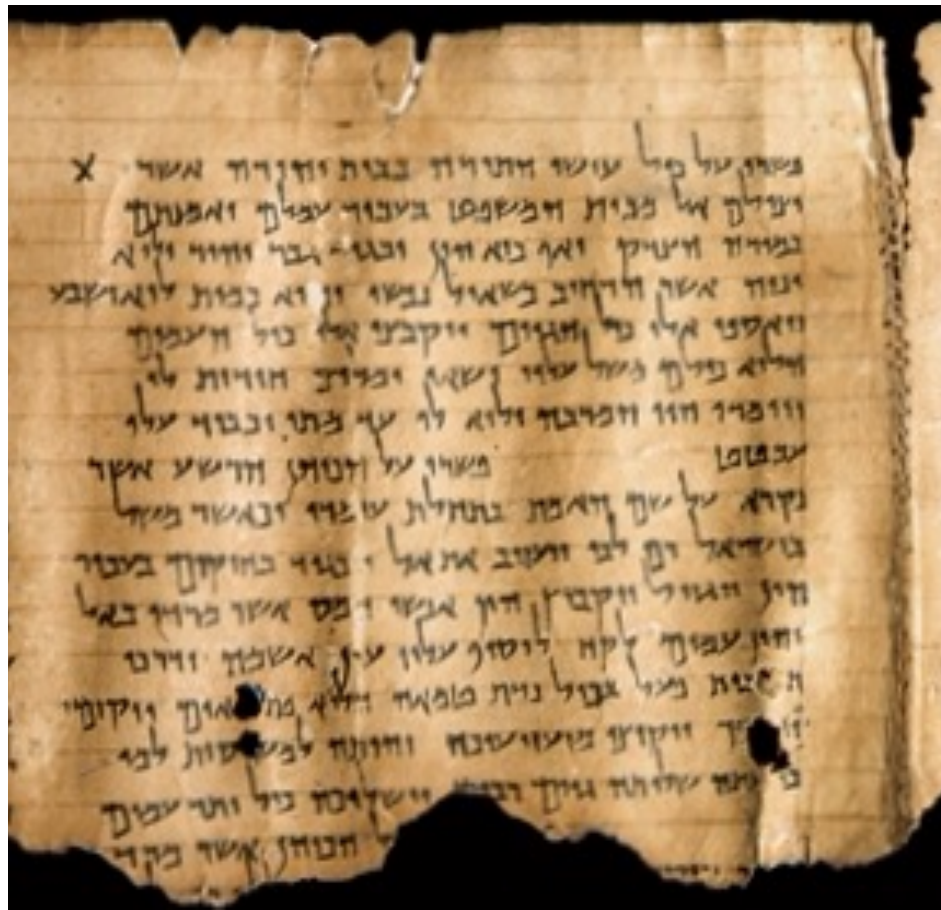 פשרו על כול עושי התורה בבית יהודה אשר X
יצילם אל מבית המשפט בעבור עמלם ואמנתם
במורה הצדק ואף כיא הון יבגוד גבר יהיר ולוא
ינוה אשר הרחיב כשאול נפשו והוא כמות לוא ישבע
ויאספו אלו כול הגוים ויקבצו אלו כול העמים
הלוא כולם משל עליו ישאו ומליצי חידות לו
ויומרו הוי המרבה ולוא לו עד מתי יכביד עלו
עבטט פשרו על הכוהן הרשע אשר
נקרא על שם האמת בתחלת עומדו וכאשר משל
בישראל רם לבו ויעזוב את אל ויבגוד בחוקים בעבור
הון ויגזול ויקבוץ הון אנשי חמס אשר מרדו באל
והון עמים לקח לוסיף עליו עון אשמה ודרכי
פעל בכול נדת טמאה הלוא ויקומו
ויקיצו מזעזיעיכה והייתה למו
שלותה גוים וישלוכה כול יתר עמים
הכוהן אשר מרד